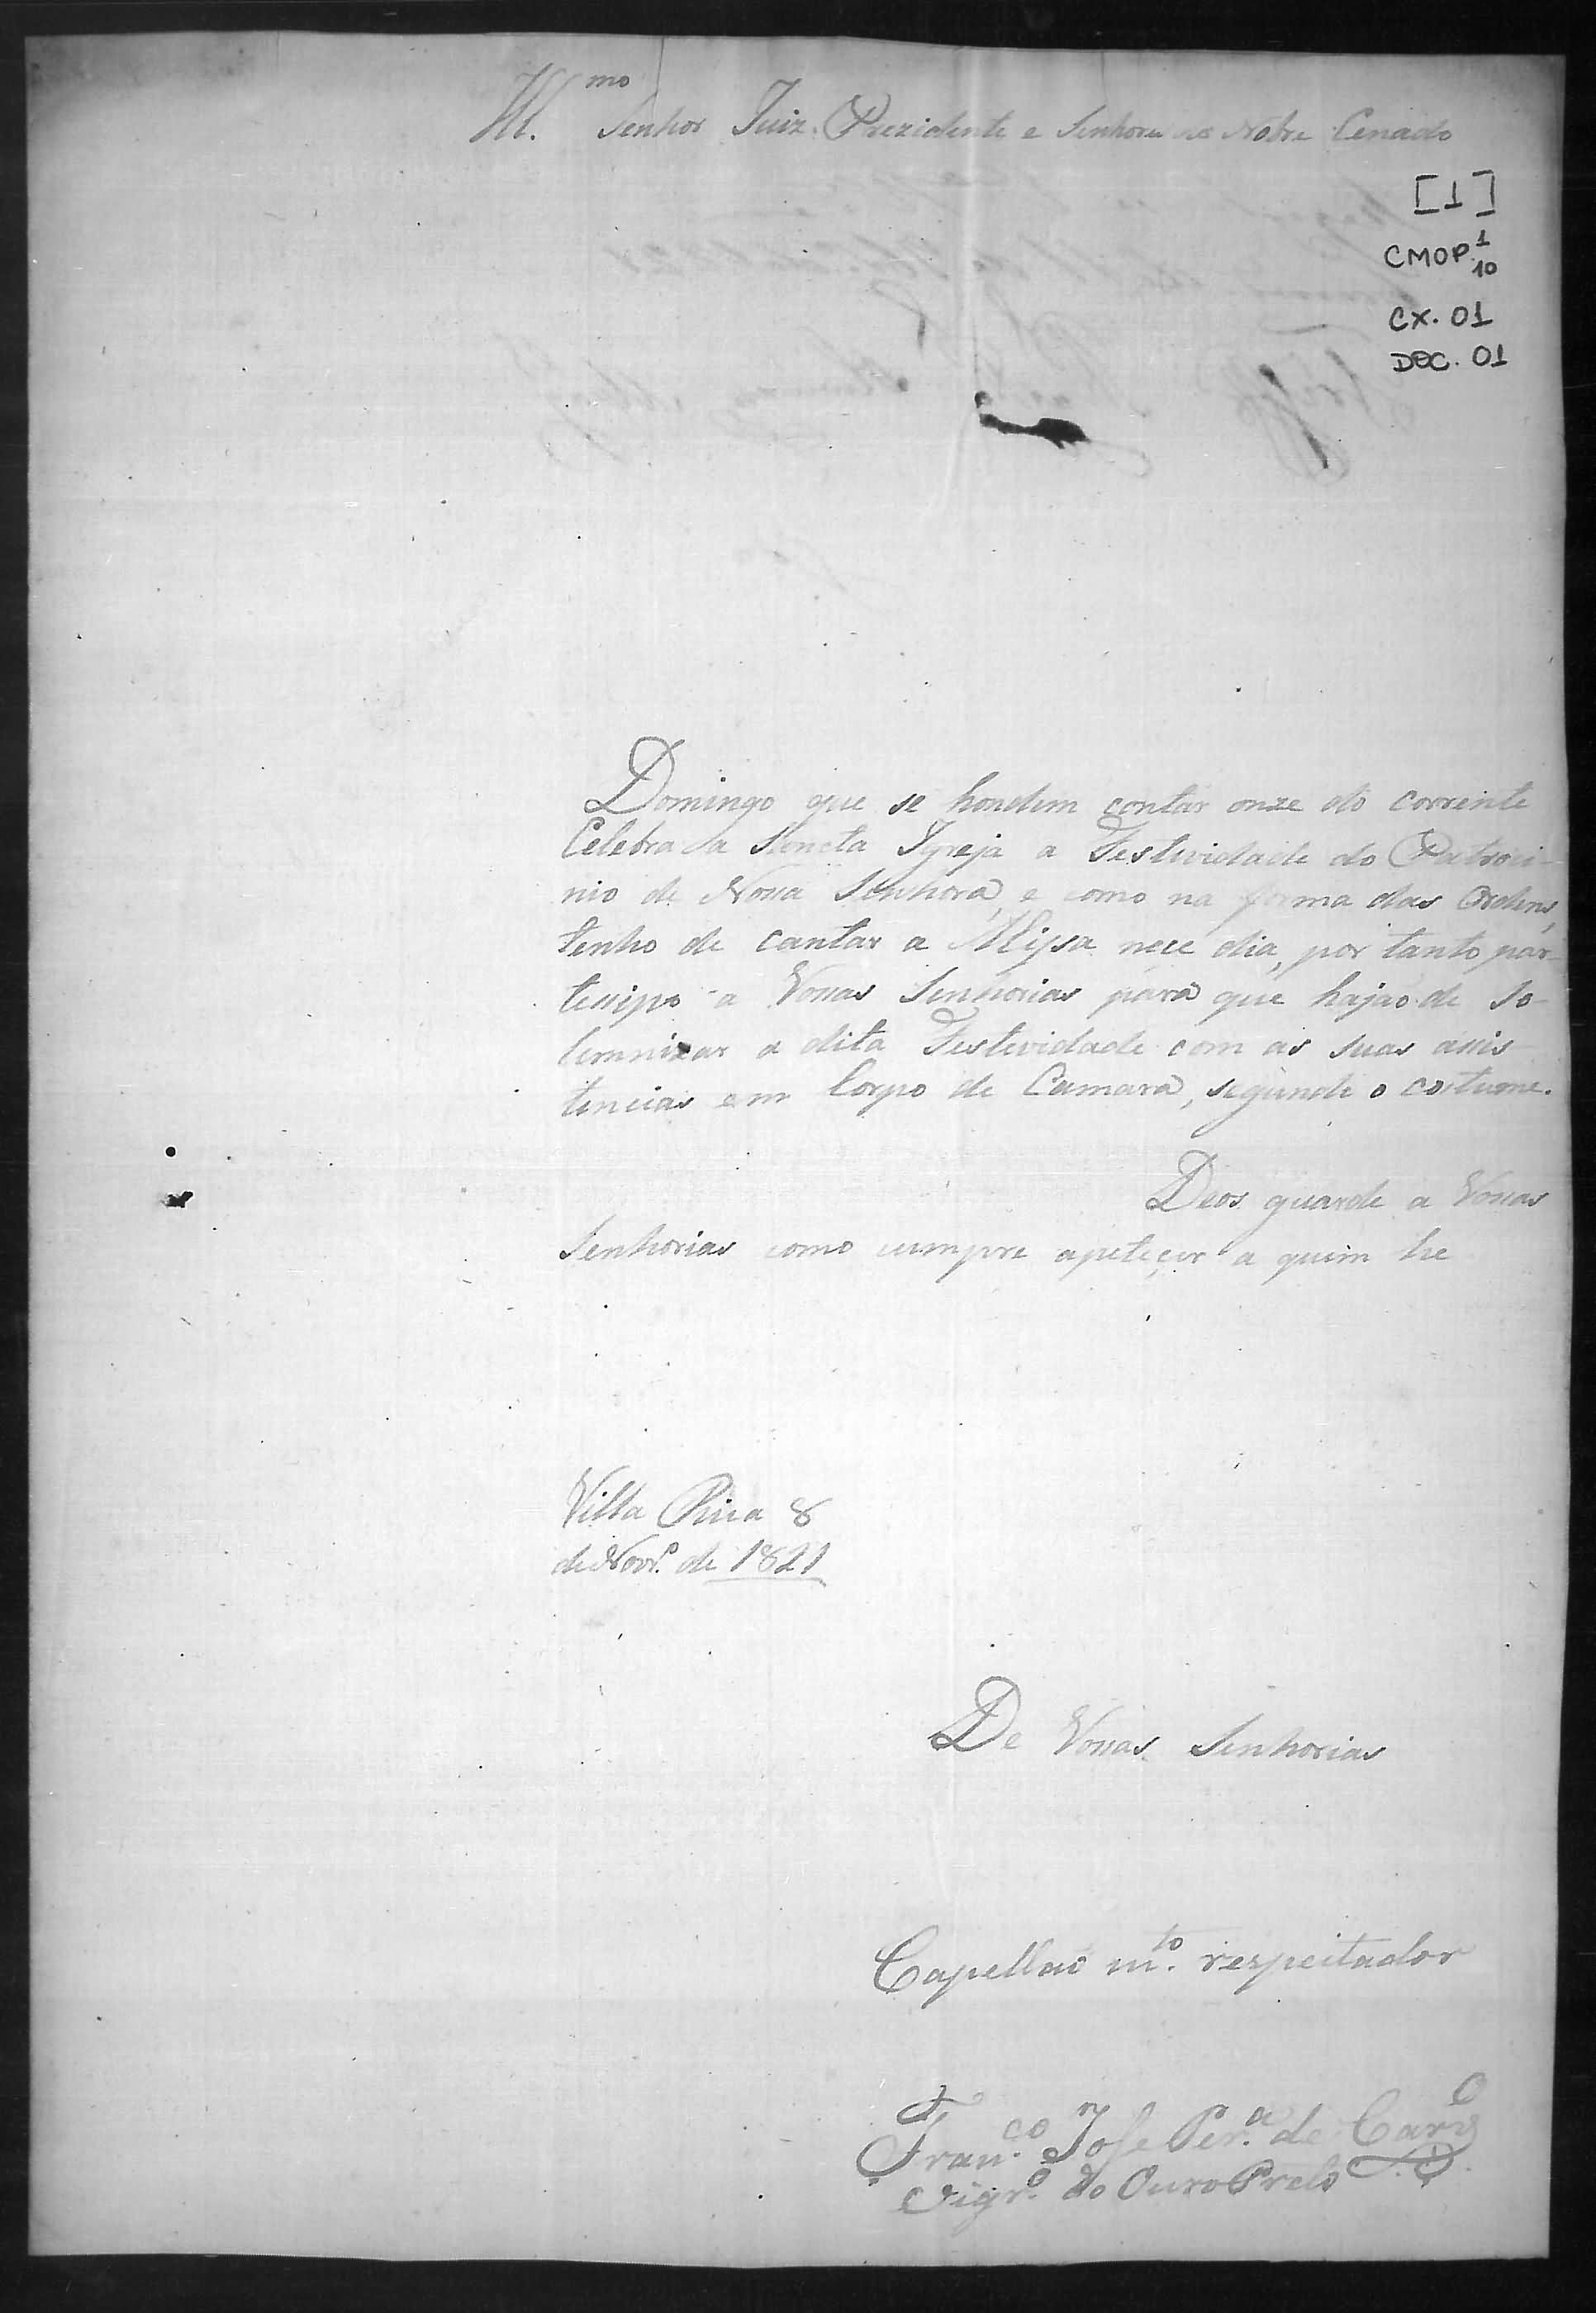 Ill.mo Senhor Juiz Prezidente e Senhores do Nobre Cenado
[1]
CMOP 1/10
CX. 01
DOC. 01
Domingo que se hondem contar onze do corrente
Celebra a Sancta Igreja a Festividade do Patroci-
nio de Nossa Senhora, e como na forma das Ordens,
tenho de cantar a Missa nece dia, por tanto par-
tecipo a Vossas Senhorias para que hajaõ de So-
lemnizar a dita Festividade com as suas assis-
tencias em Corpo de Camara, segundo o costume.
Deos guarde a Vossas
Senhorias como cumpre apetecer a quem he
Villa Rica 8
de Novr.o de 1821
De Vossas Senhorias
Capellaõ m.to respeitador
Fran.co Jose Per.a de Carv.o
Vigr.o do Ouro Preto